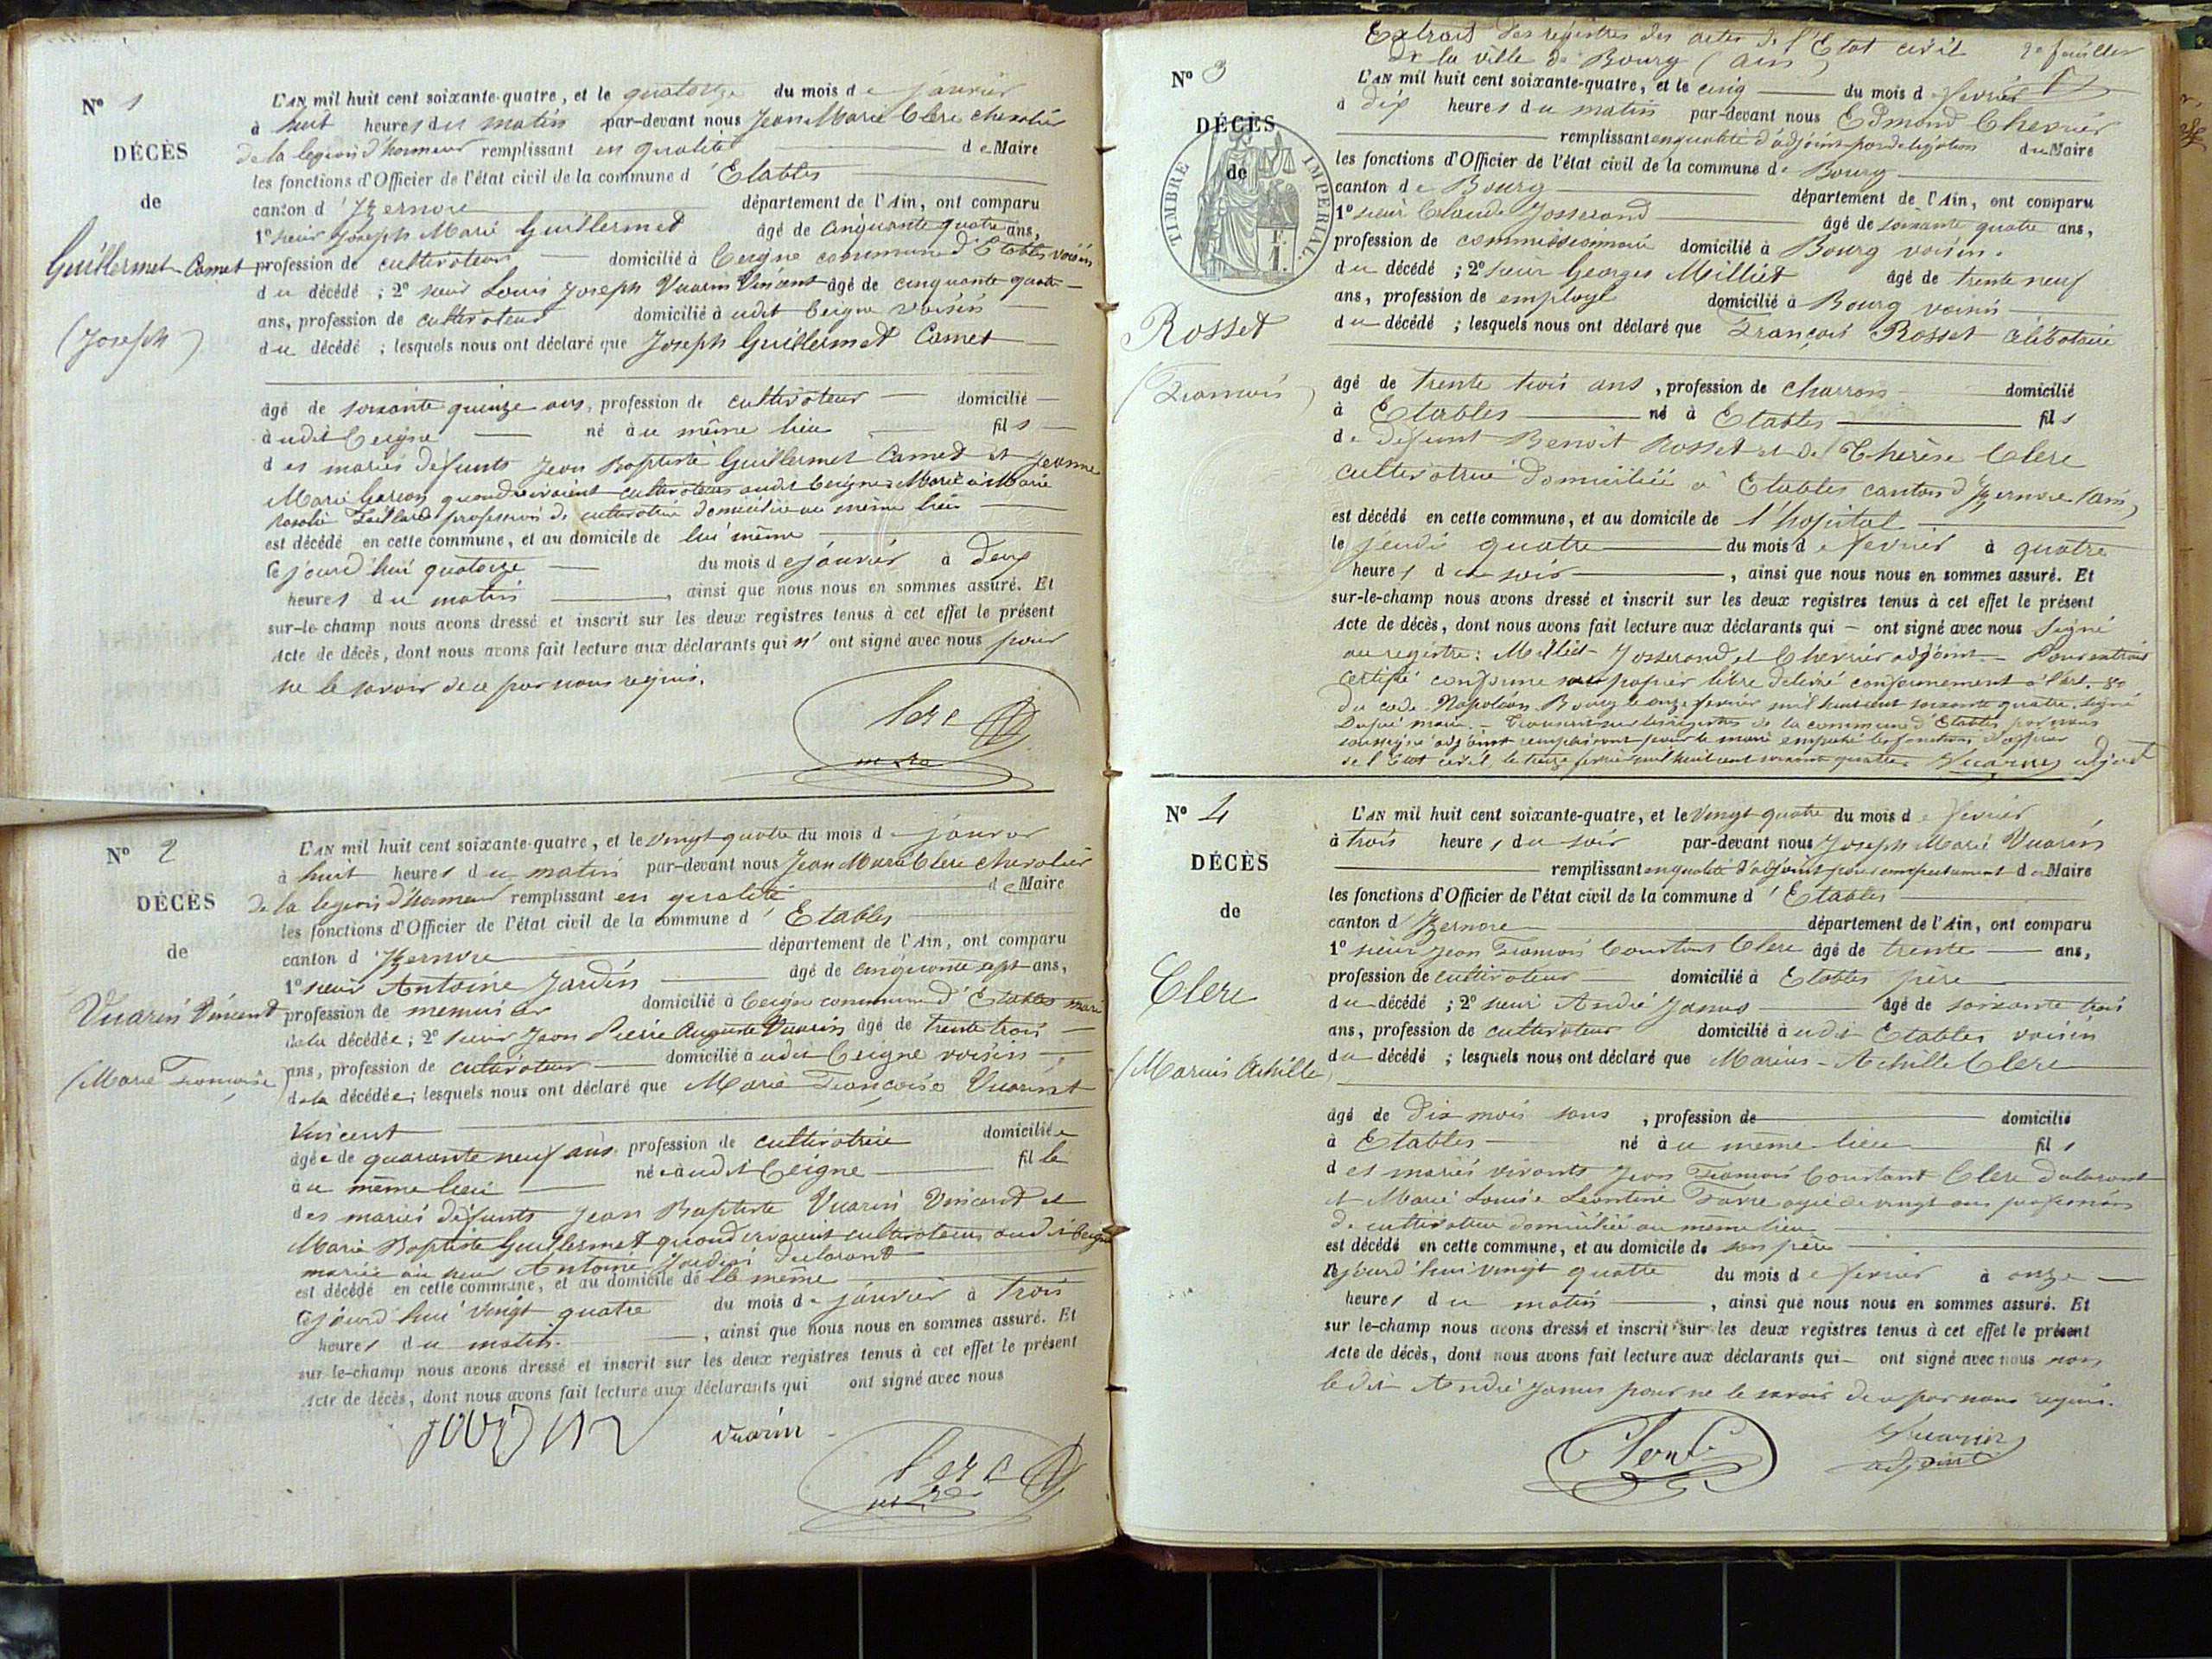 Nº 1
DÉCÈS
de
Guillermet-Camet
(Joseph)
L'AN mil huit cent soixante-quatre, et le quatorze du mois de janvier
à huit heures du matin par-devant nous Jean Marie Clerc chevalier
de la legion d'honneur remplissant en qualité de Maire
les fonctions d'Officier de l'état civil de la commune d'Etables
canton d'Izernore département de l'Ain, ont comparu
1º sieur Joseph Marie Guillermet âgé de cinquante quatre ans,
profession de cultivateur domicilié à Ceigne commune d'Etables voisin
du décédé ; 2º sieur Louis Joseph Vuarin Vincent âgé de cinquante quatre
ans, profession de cultivateur domicilié à udit Ceigne voisin
du décédé ; lesquels nous ont déclaré que Joseph Guillermet Camet
âgé de soixante quinze ans, profession de cultivateur domicilié
à udit Ceigne né à u même lieu fils
des mariés defunts Jean Baptiste Guillermet Camet et Jeanne
Marie quand vivaient cultivateurs audit Ceigne Marié à Marie
rosalie profession de cultivatrice domiciliée au même lieu
est décédé en cette commune, et au domicile de lui même
cejourd'hui quatorze du mois de janvier à deux
heures du matin, ainsi que nous nous en sommes assuré. Et
sur-le-champ nous avons dressé et inscrit sur les deux registres tenus à cet effet le présent
Acte de décès, dont nous avons fait lecture aux déclarants qui n'ont signé avec nous pour
ne le savoir de ce par nous requis.
Clerc
maire
Nº 2
DÉCÈS
de
Vuarin Vincent
(Marie Françoise)
L'AN mil huit cent soixante-quatre, et le vingt quatre du mois de janvier
à huit heures du matin par-devant nous Jean Marie Clerc chevalier
de la legion d'honneur remplissant en qualité de Maire
les fonctions d'Officier de l'état civil de la commune d'Etables
canton d'Izernore département de l'Ain, ont comparu
1º sieur Antoine Jardin âgé de cinquante sept ans,
profession de menuisier domicilié à Ceigne commune d'Etables mari
de la décédée ; 2º sieur Jean Pierre Auguste Vuarin âgé de trente trois
ans, profession de cultivateur domicilié à udit Ceigne voisin
de la décédée ; lesquels nous ont déclaré que Marie Françoise Vuarin
Vincent
âgée de quarante neuf ans, profession de cultivatrice domiciliée
à u même lieu née à udit Ceigne fille
des mariés défunts Jean Baptiste Vuarin Vincent et
Marie Baptiste Guillermet quand vivaient cultivateurs audit Ceigne
mariée au sieur Antoine Jardin declarant
est décédé en cette commune, et au domicile de lle même
cejourd'hui vingt quatre du mois de janvier à trois
heures du matin, ainsi que nous nous en sommes assuré. Et
sur-le-champ nous avons dressé et inscrit sur les deux registres tenus à cet effet le présent
Acte de décès, dont nous avons fait lecture aux déclarants qui ont signé avec nous
jardin vuarin
Clerc
maire
Extrait des registres des actes de l'Etat civil 2e feuillet
De la ville de Bourg (Ain)
Nº 3
DÉCÈS
de
TIMBRE IMPÉRIAL
Rosset
(François)
L'AN mil huit cent soixante-quatre, et le cinq du mois de fevrier
à dix heures du matin par-devant nous Edmond Chevrier
remplissant en qualité d'adjoint par delegation du Maire
les fonctions d'Officier de l'état civil de la commune de Bourg
canton de Bourg département de l'Ain, ont comparu
1º sieur Claude Josserand âgé de soixante quatre ans,
profession de commissionnaire domicilié à Bourg voisin.
du décédé ; 2º sieur Georges Milliet âgé de trente neuf
ans, profession de employé domicilié à Bourg voisin
du décédé ; lesquels nous ont déclaré que François Rosset célibataire
âgé de trente trois ans, profession de charron domicilié
à Etables né à Etables fils
de defunt Benoit Rosset et de Thérèse Clerc
cultivatrice domiciliée à Etables canton d'Izernore (Ain)
est décédé en cette commune, et au domicile de l'hopital
le jeudi quatre du mois de fevrier à quatre
heures du soir, ainsi que nous nous en sommes assuré. Et
sur-le-champ nous avons dressé et inscrit sur les deux registres tenus à cet effet le présent
Acte de décès, dont nous avons fait lecture aux déclarants qui – ont signé avec nous Signé
au registre : Milliet Josserand et Chevrier adjoint. – Pour extrait
certifié conforme sur papier libre delivré conformement à l'art. 80
du code Napoléon Bourg le onze fevrier mil huit cent soixante quatre, signé
maire. – Transcrit sur les registres de la commune d'Etables par nous
soussigné adjoint remplissant pour le maire empeché les fonctions d'officier
de l'Etat civil, le treize fevrier mil huit cent soixante quatre. Vuarin adjoint
Nº 4
DÉCÈS
de
Clerc
(Marius Achille)
L'AN mil huit cent soixante-quatre, et le vingt quatre du mois de fevrier
à trois heures du soir par-devant nous Joseph Marie Vuarin
remplissant en qualité d'adjoint pour empechement du Maire
les fonctions d'Officier de l'état civil de la commune d'Etables
canton d'Izernore département de l'Ain, ont comparu
1º sieur Jean François Constant Clerc âgé de trente ans,
profession de cultivateur domicilié à Etables père
du décédé ; 2º sieur André Janus âgé de soixante trois
ans, profession de cultivateur domicilié à udit Etables voisin
du décédé ; lesquels nous ont déclaré que Marius-Achille Clerc
âgé de dix mois sans, profession de domicilié
à Etables né à u même lieu fils
des mariés vivants Jean François Constant Clerc declarant
et Marie Louise Léontine Favre agée de vingt ans profession
de cultivatrice domiciliée au meme lieu
est décédé en cette commune, et au domicile de son père
cejourd'hui vingt quatre du mois de fevrier à onze
heures du matin, ainsi que nous nous en sommes assuré. Et
sur le-champ nous avons dressé et inscrit sur les deux registres tenus à cet effet le présent
Acte de décès, dont nous avons fait lecture aux déclarants qui – ont signé avec nous non
ledit André Janus pour ne le savoir de ce par nous requis.
Vuarin
adjoint